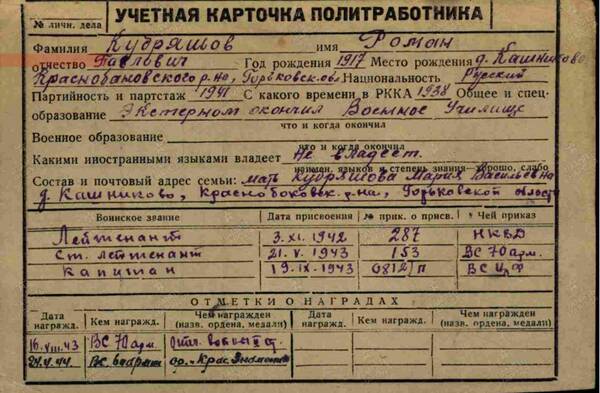 УЧЕТНАЯ КАРТОЧКА ПОЛИТРАБОТНИКА
№ личн. дела
Фамилия Кудряшов имя Роман
отчество Павлович Год рождения 1917 Место рождения д. Кашниково
Краснобаковского р-на, Горьковск. обл. Национальность Русский
Партийность и партстаж 1941 С какого времени в РККА 1938 Общее и спец-
образование Экстерном окончил Военное Училище
что и когда окончил
Военное образование
что и когда окончил
Какими иностранными языками владеет Не владеет.
наимен. языков и степень знания—хорошо, слабо
Состав и почтовый адрес семьи: мать Кудряшова Мария Васильевна
д. Кашниково, Краснобаковск. р-на, Горьковской области
Воинское звание Дата присвоения № прик. о присв. Чей приказ
Лейтенант 3.XI.1942 287 НКВД
Ст. лейтенант 21.V.1943 153 ВС 70 арм.
Капитан 19.IX-1943 0812/п ВС ЦФ
ОТМЕТКИ О НАГРАДАХ
Дата награжд. Кем награжд. Чем награжден (назв. ордена, медали) Дата награжд. Кем награжд. Чем награжден (назв. ордена, медали)
16.VIII.43 ВС 70 арм. Отеч. войны II ст.
ВС ор. „Крас. Знамени“